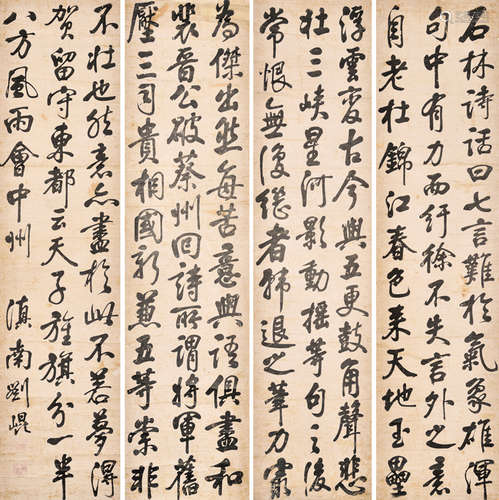 石林詩話曰七言難於氣象雄渾
句中有力而紆徐不失言外之意
自老杜錦江春色來天地玉壘
浮雲變古今與五更鼓角聲悲
壯三峽星河影動搖等句之後
常恨無復继者韓退之筆力最
為傑出然每苦意與語俱盡和
裴晉公破蔡州回詩所謂將軍舊
壓三司貴相國新兼五等崇非
不壯也然意亦盡於此不若夢得
賀留守東都云天子旌旗分一半
八方風雨會中州 滇南劉崐